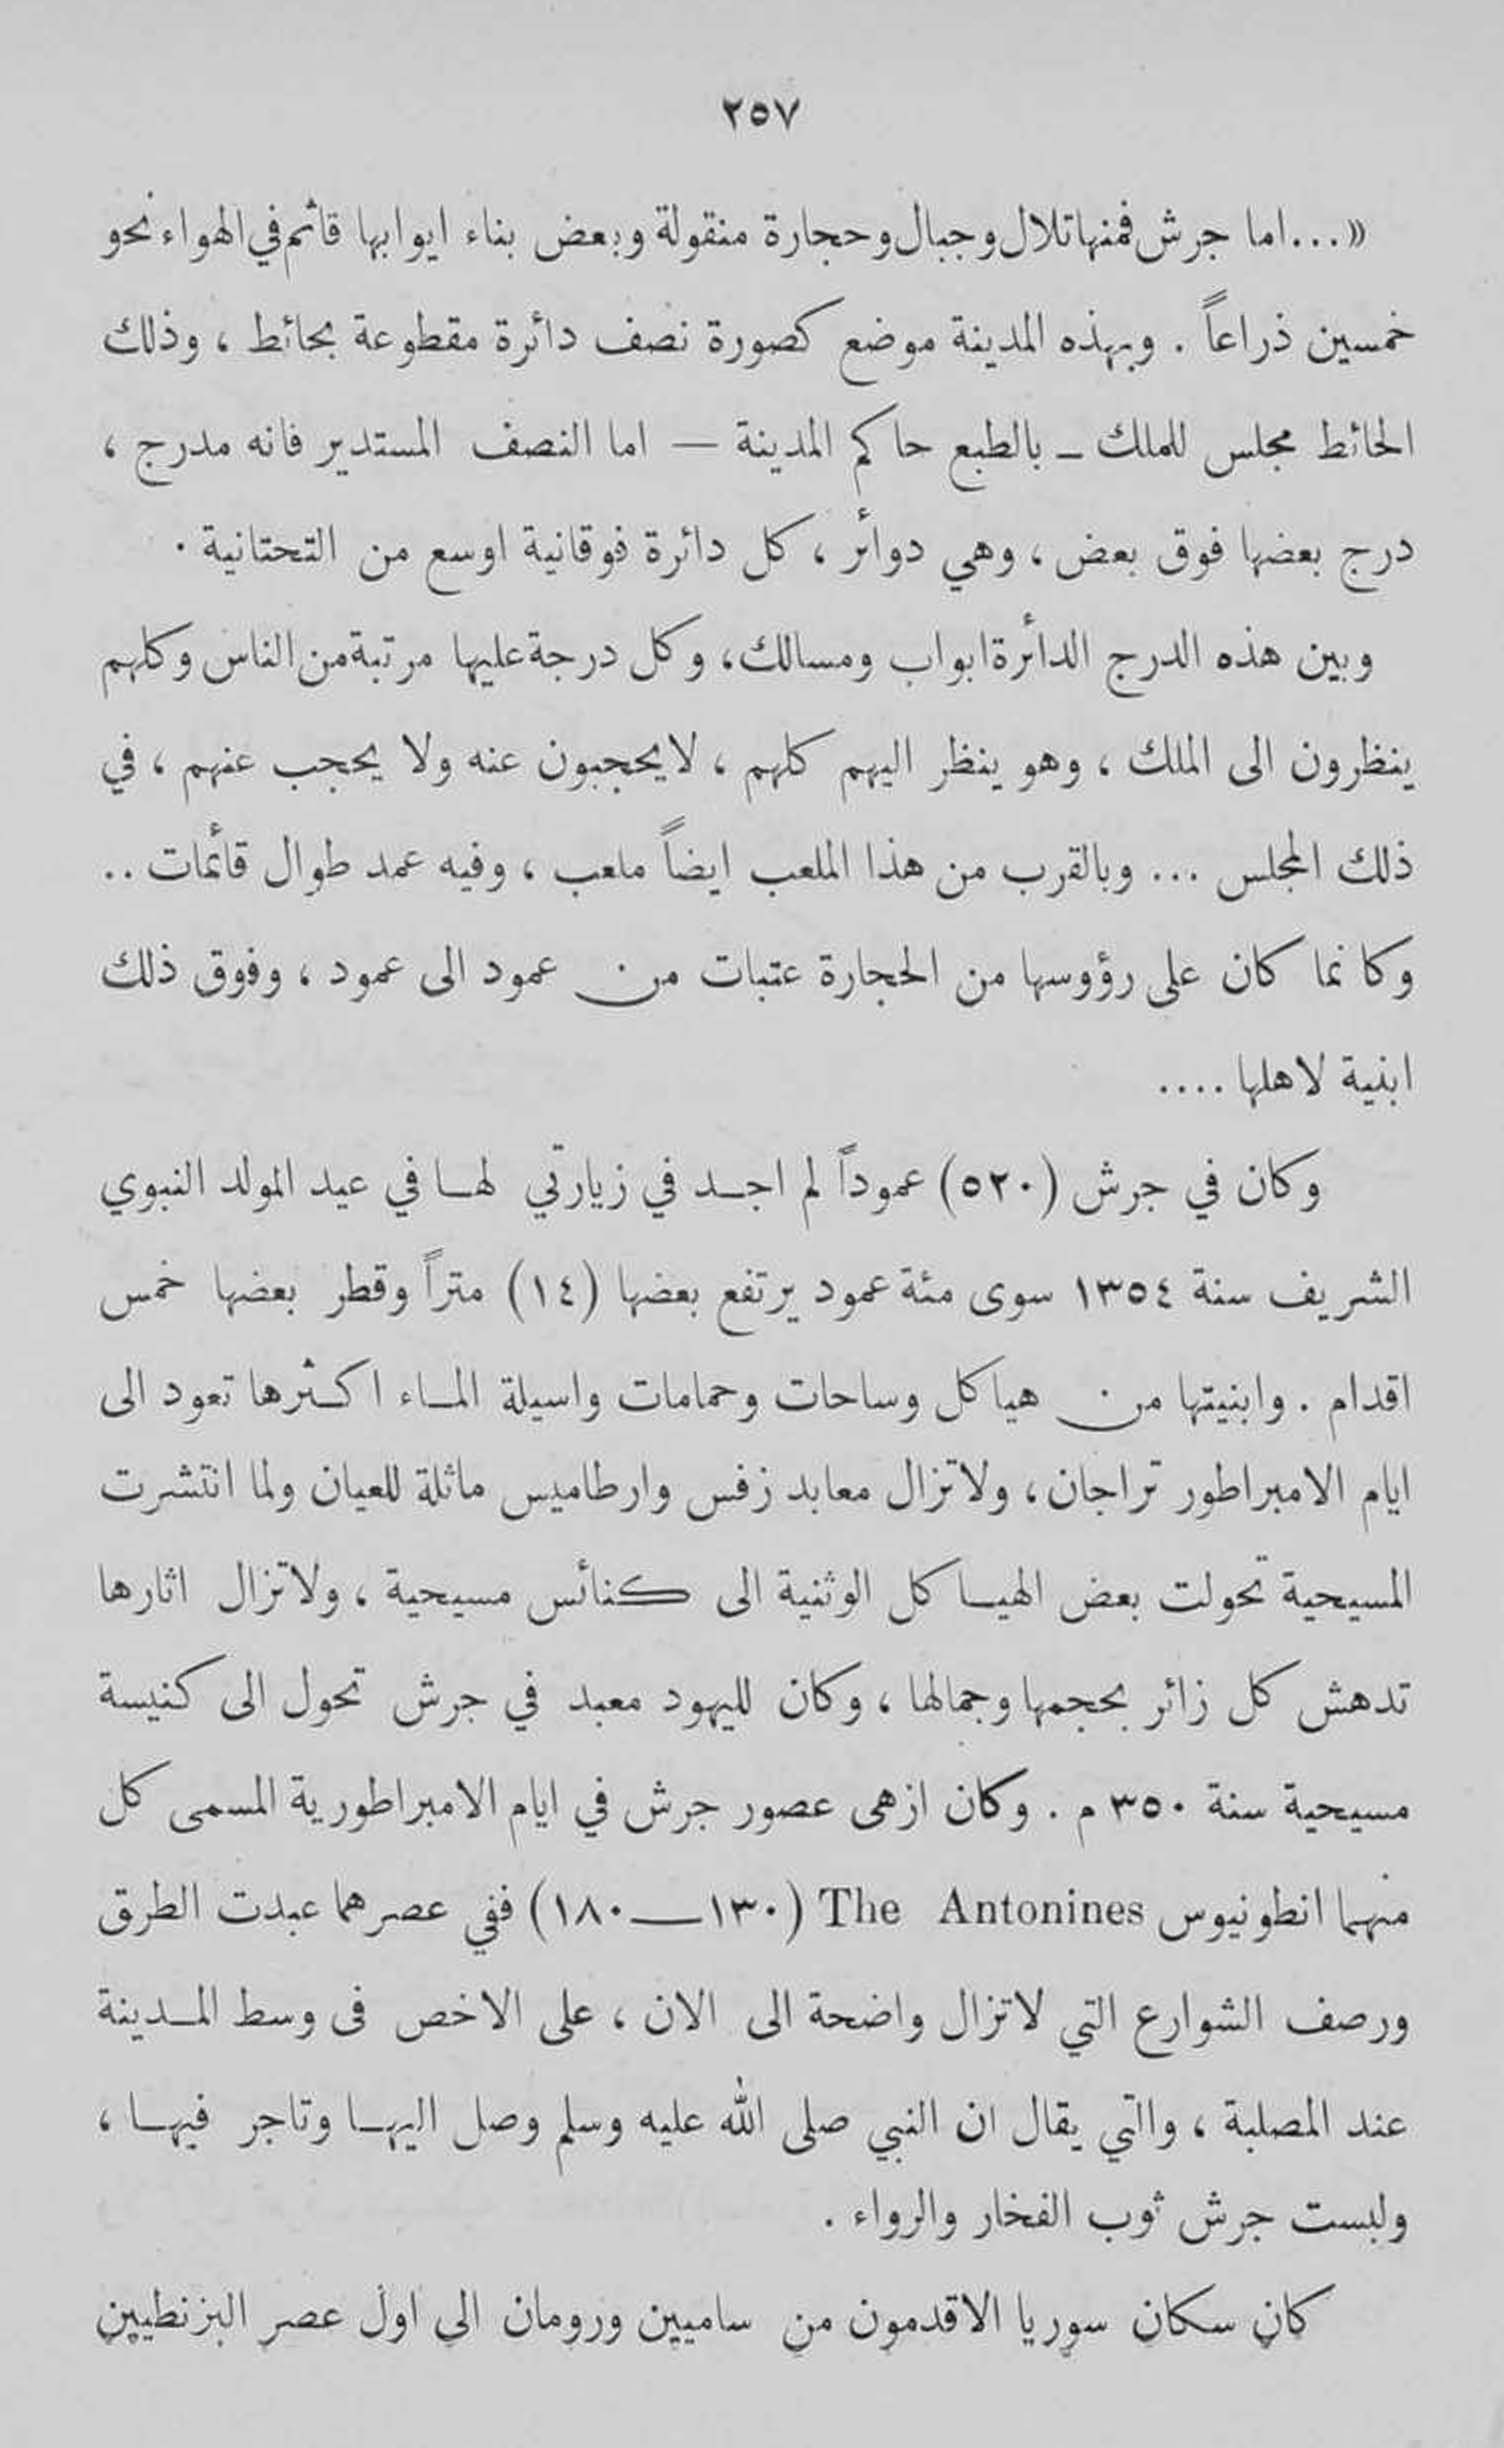 ٢٥٧
«...اما جرش فمنها تلال وجبال وحجارة منقولة وبعض بناء ابوابها قائم في الهواء نحو
خمسين ذراعاً . وبهذه المدينة موضع كصورة نصف دائرة مقطوعة بحائط ، وذلك
الحائط مجلس للملك ــ بالطبع حاكم المدينة — اما النصف المستدير فانه مدرج ،
درج بعضها فوق بعض ، وهي دوائر ، كل دائرة فوقانية اوسع من التحتانية .
وبين هذه الدرج الدائرة ابواب ومسالك، وكل درجة عليها مرتبة من الناس وكلهم
ينظرون الى الملك ، وهو ينظر اليهم كلهم ، لا يحجبون عنه ولا يحجب عنهم ، في
ذلك المجلس ... وبالقرب من هذا الملعب ايضاً ملعب ، وفيه عمد طوال قائمات ..
وكانما كان على رؤوسها من الحجارة عتبات من عمود الى عمود ، وفوق ذلك
ابنية لاهلها ....
وكان في جرش (٥٢٠) عموداً لم اجد في زيارتي لها في عيد المولد النبوي
الشريف سنة ١٣٥٤ سوى مئة عمود يرتفع بعضها (١٤) متراً وقطر بعضها خمس
اقدام . وابنيتها من هياكل وساحات وحمامات واسيلة الماء اكثرها تعود الى
ايام الامبراطور تراجان ، ولاتزال معابد زفس وارطاميس ماثلة للعيان ولما انتشرت
المسيحية تحولت بعض الهياكل الوثنية الى كنائس مسيحية ، ولاتزال اثارها
تدهش كل زائر بحجمها وجمالها ، وكان لليهود معبد في جرش تحول الى كنيسة
مسيحية سنة ٣٥٠ م . وكان ازهى عصور جرش في ايام الامبراطورية المسمى كل
منهما انطونيوس The Antonines (١٣٠—١٨٠) ففي عصرهما عبدت الطرق
ورصف الشوارع التي لاتزال واضحة الى الان ، على الاخص فى وسط المدينة
عند المصلبة ، والتي يقال ان النبي صلى الله عليه وسلم وصل اليها وتاجر فيها ،
ولبست جرش ثوب الفخار والرواء .
كان سكان سوريا الاقدمون من ساميين ورومان الي اول عصر البزنطيين